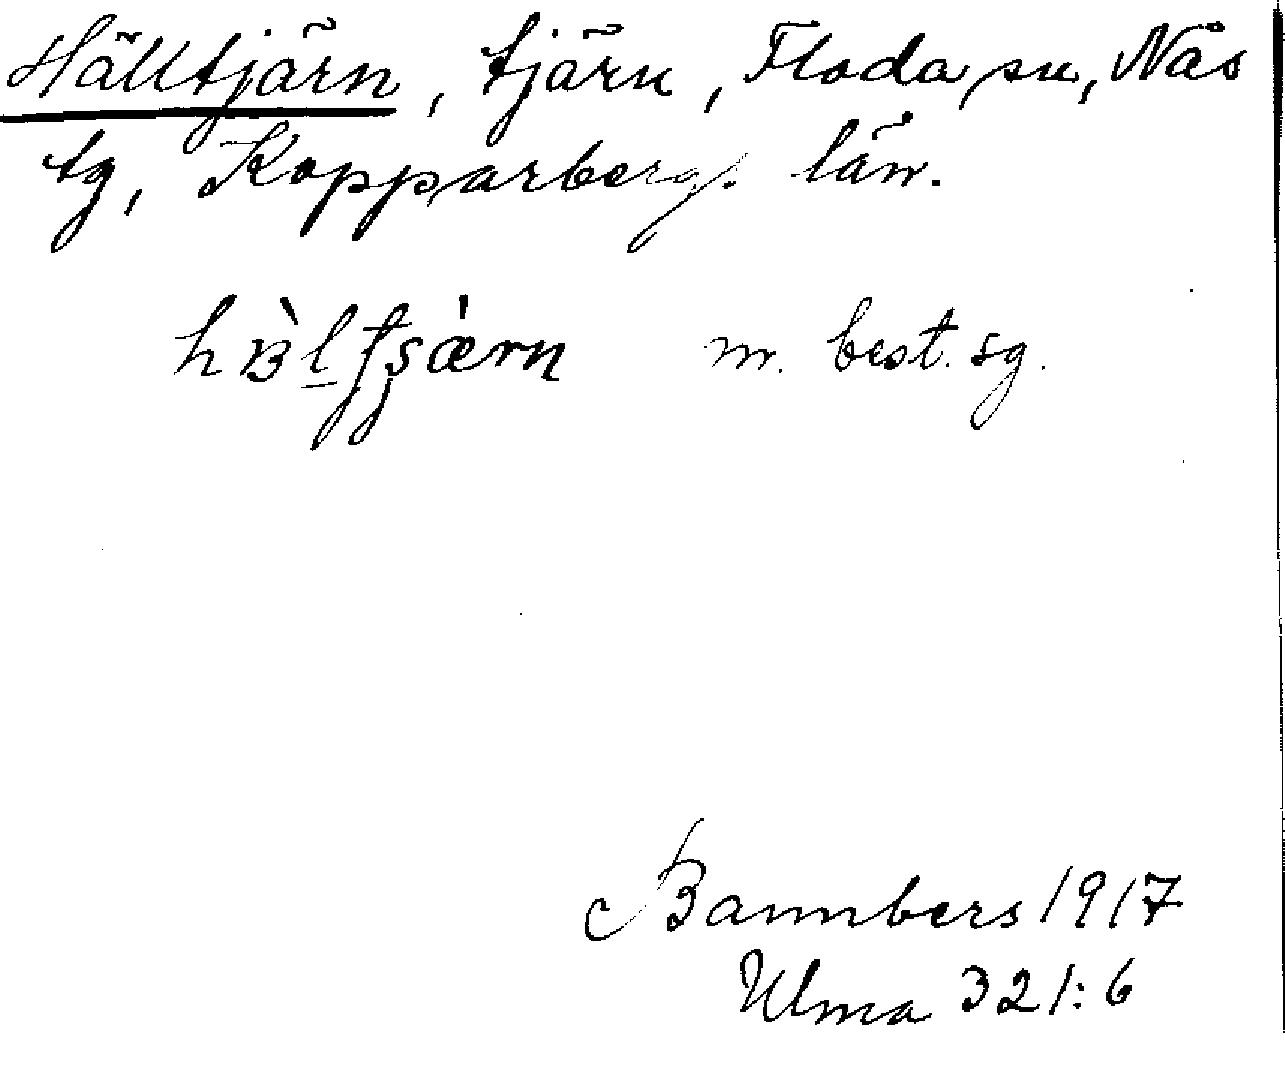 Hälltjärn, tjärn, Floda sn, Nås
tg, Kopparbergs län.
m. best. sg.
Bannbers 1917
Ulma 321:6